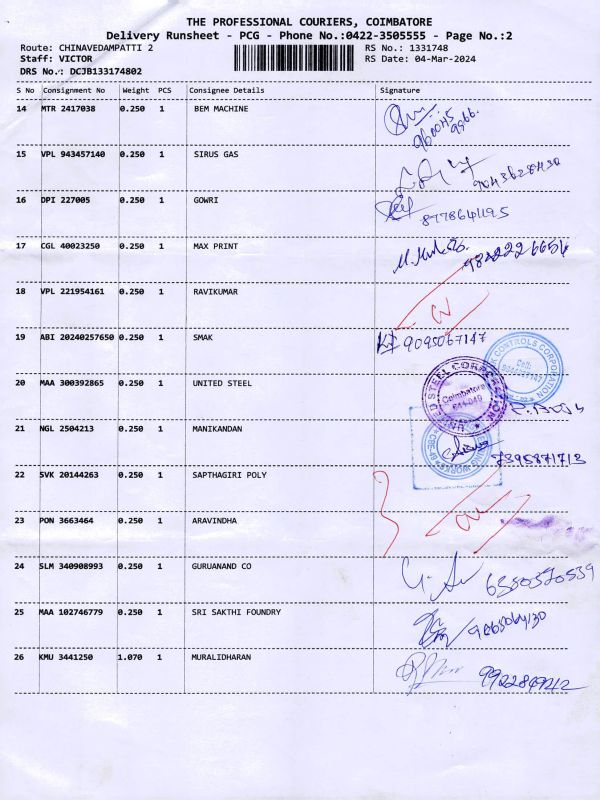 THE PROFESSIONAL COURIERS, COIMBATORE
Delivery Runsheet - PCG - Phone No.:0422-3505555 - Page No.:2
Route: CHINAVEDAMPATTI 2 RS No.: 1331748
Staff: VICTOR RS Date: 04-Mar-2024
DRS No.: DCJB133174802
S No Consignment No Weight PCS Consignee Details Signature
14 MTR 2417038 0.250 1 BEM MACHINE
15 VPL 943457140 0.250 1 SIRUS GAS
16 DPI 227005 0.250 1 GOWRI
8778641195
17 CGL 40023250 0.250 1 MAX PRINT
18 VPL 221954161 0.250 1 RAVIKUMAR
19 ABI 20240257650 0.250 1 SMAK 9095067147
20 MAA 300392865 0.250 1 UNITED STEEL
STEEL CORPORATION
Coimbatore
CONTROLS CORPORATION
21 NGL 2504213 0.250 1 MANIKANDAN
7395871713
22 SVK 20144263 0.250 1 SAPTHAGIRI POLY
23 PON 3663464 0.250 1 ARAVINDHA
24 SLM 340908993 0.250 1 GURUANAND CO
6380370539
25 MAA 102746779 0.250 1 SRI SAKTHI FOUNDRY
26 KMU 3441250 1.070 1 MURALIDHARAN